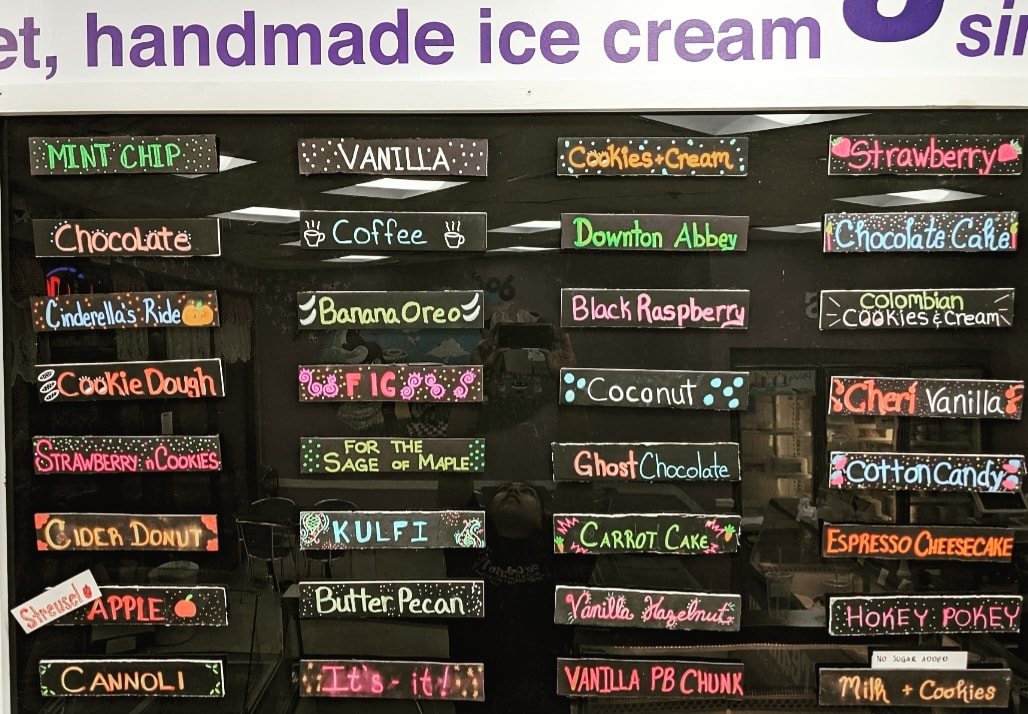 et, handmade ice cream
MINT CHIP
VANILLA
Cookies + Cream
Strawberry
Chocolate
Coffee
Downton Abbey
Chocolate Cake
Cinderella's Ride
Banana Oreo
Black Raspberry
Colombian
Cookies & Cream
Cookie Dough
FIG
Coconut
Cheri Vanilla
STRAWBERRY n COOKIES
FOR THE
SAGE OF MAPLE
Ghost Chocolate
Cotton Candy
CIDER DONUT
KULFI
CARROT CAKE
ESPRESSO CHEESECAKE
Streusel
APPLE
Butter Pecan
Vanilla Hazelnut
HOKEY POKEY
CANNOLI
It's-it!
VANILLA PB CHUNK
NO SUGAR ADDED
Milk + Cookies